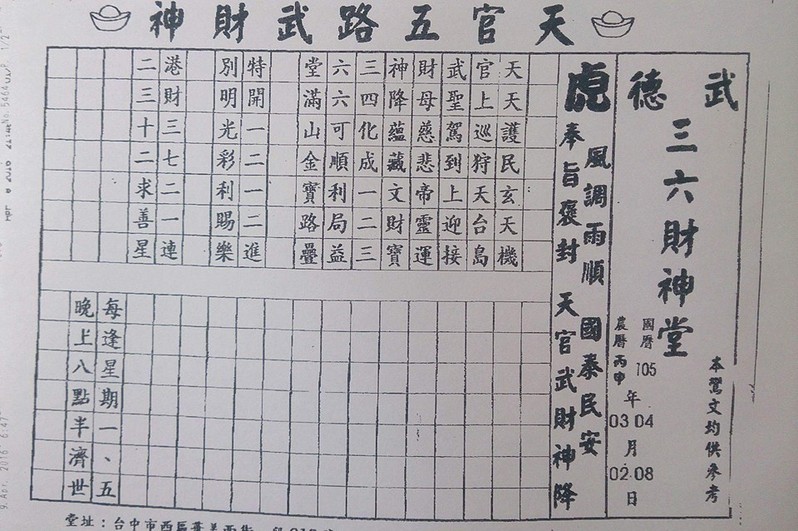 天官五路武財神
武德
三六財神堂
本鸞文均供參考
國曆 105 年 04 月 08 日
農曆丙申 03 02
虎
風調雨順 國泰民安
奉旨褒封 天官武財神降
天天護民玄天機
官上巡狩天台島
武聖駕到上迎接
財母慈悲帝靈運
神降蘊藏文財寶
三四化成一二三
六六可順利局益
堂滿山金寶路疊
特開一二一二進
別明光彩利賜樂
港財三七二一連
二三十二求善星
每逢星期一、五
晚上八點半濟世
堂址：台中市西區
9.Apr. 2016 6:47
No.5464 P. 1/2